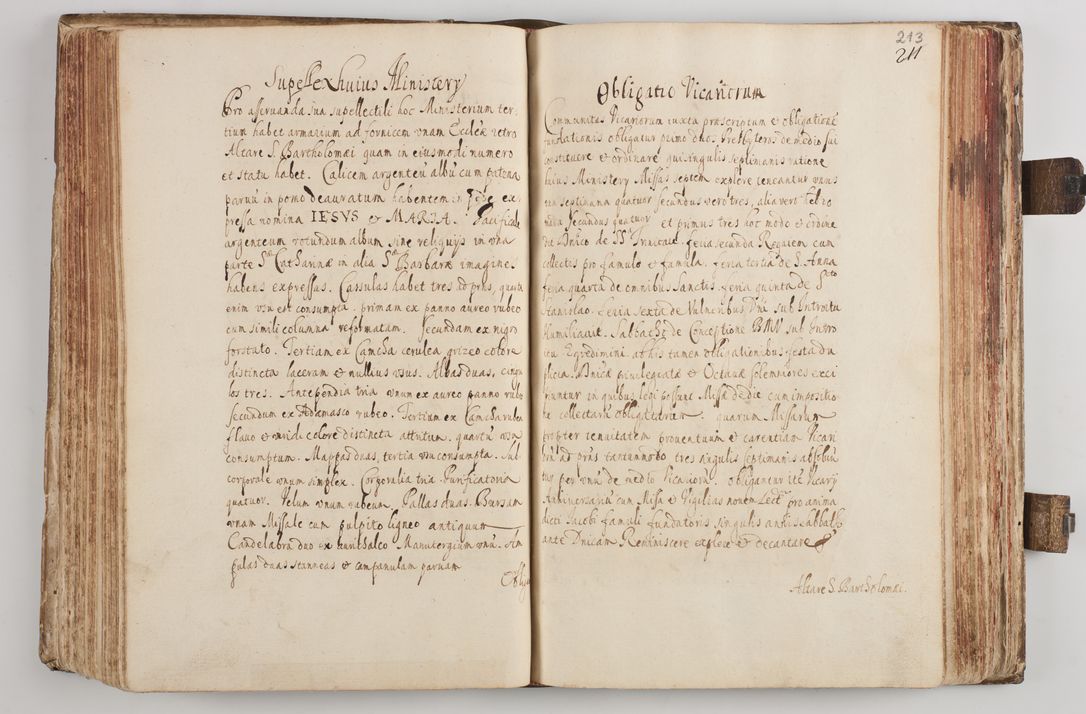 Supellex huius Ministery
Pro asseruanda sua supellectili hoc Ministerium ter-
tium habet armarium ad fornicem unam Ecclae retro
Altare S. Bartholomæi quam in eiusmodi numero
et statu habet. Calicem argenteū albū cum patena
paruū in pomo deauratum habentem in pede ex-
pressa nomina IESVS & MARIA. Pacificale
argenteum rotundum album sine reliquijs in una
parte Stæ Catharinæ in alia Stæ Barbaræ imagines
habens expressus. Casulas habet tres ad præns, quarta
enim uon est consumpta. primam ex panno aureo rubeo
cum simili columna reformatam. Secundam ex nigro
forstato. Tertiam ex Camcha cerulea grizeo colore
distincta laceram & nullius usus. Albas duas, cingu
los tres. Antependia tria unum ex aureo panno rubeo
secundum ex Adamasco rubeo. Tertium ex Camcha rubea
flauo & uiridi colore distincta attritum. quartū uon
consumptum. Mappas duas, tertia uon consumpta. Sub
corporale unum simplex. Corporalia tria. Purificatoria
quatuor. Velum unum rubeum. Pallas duas. Bursam
unam Missale cum pulpito ligneo antiquum
Candelabra duo ex aurichalco Manutergium unū. Am
pulas duas stanneas & campanulam paruam
Oblig
243
211
Obligatio Vicariorum
Communitas Vicariorum iuxta præscriptum & obligationē
fundationis obligatur primo duos Presbyteros de medio sui
constituere & ordinare qui singulis septimanis ratione
huius Ministery Missas septem explere teneantur unus
una septimana quatuor secundus vero tres, alia vero
secundus quatuor et primus tres hoc modo & ordine
Dnico de SS. Trinitate. feria secunda Requiem cum
collectis pro famulo & famula. feria tertia de S. Anna
feria quarta de omnibus Sanctis. feria quinta de Sto
Stanislao. feria sexta de Vulneribus Dni sub Introitu
Humiliauit. Sabbatho de Conceptione BMV sub Intro
itu Egredimini. ab his tamen obligationibus festa du
plicia. Dnicæ priuilegiatæ & Octauæ solemniores exci
piuntur in quibus legi possunt Missæ de die cum impositio
ne collectarū obligatarum. quarum Missarum
propter tenuitatem prouentuum & carentiam Vicari
orū ad præns tantummodo tres singulis septimanis absoluū
tur per unū de medio Vicariorū. Obligantur itē Vicary
Anniuersariū cum Missa & Vigilias nouem Lect. pro anima
dicti Jacobi famuli fundatoris singulis annis Sabbatho
ante Dnicam Reminiscere explere & decantare
Altare S. Bartholomæi.